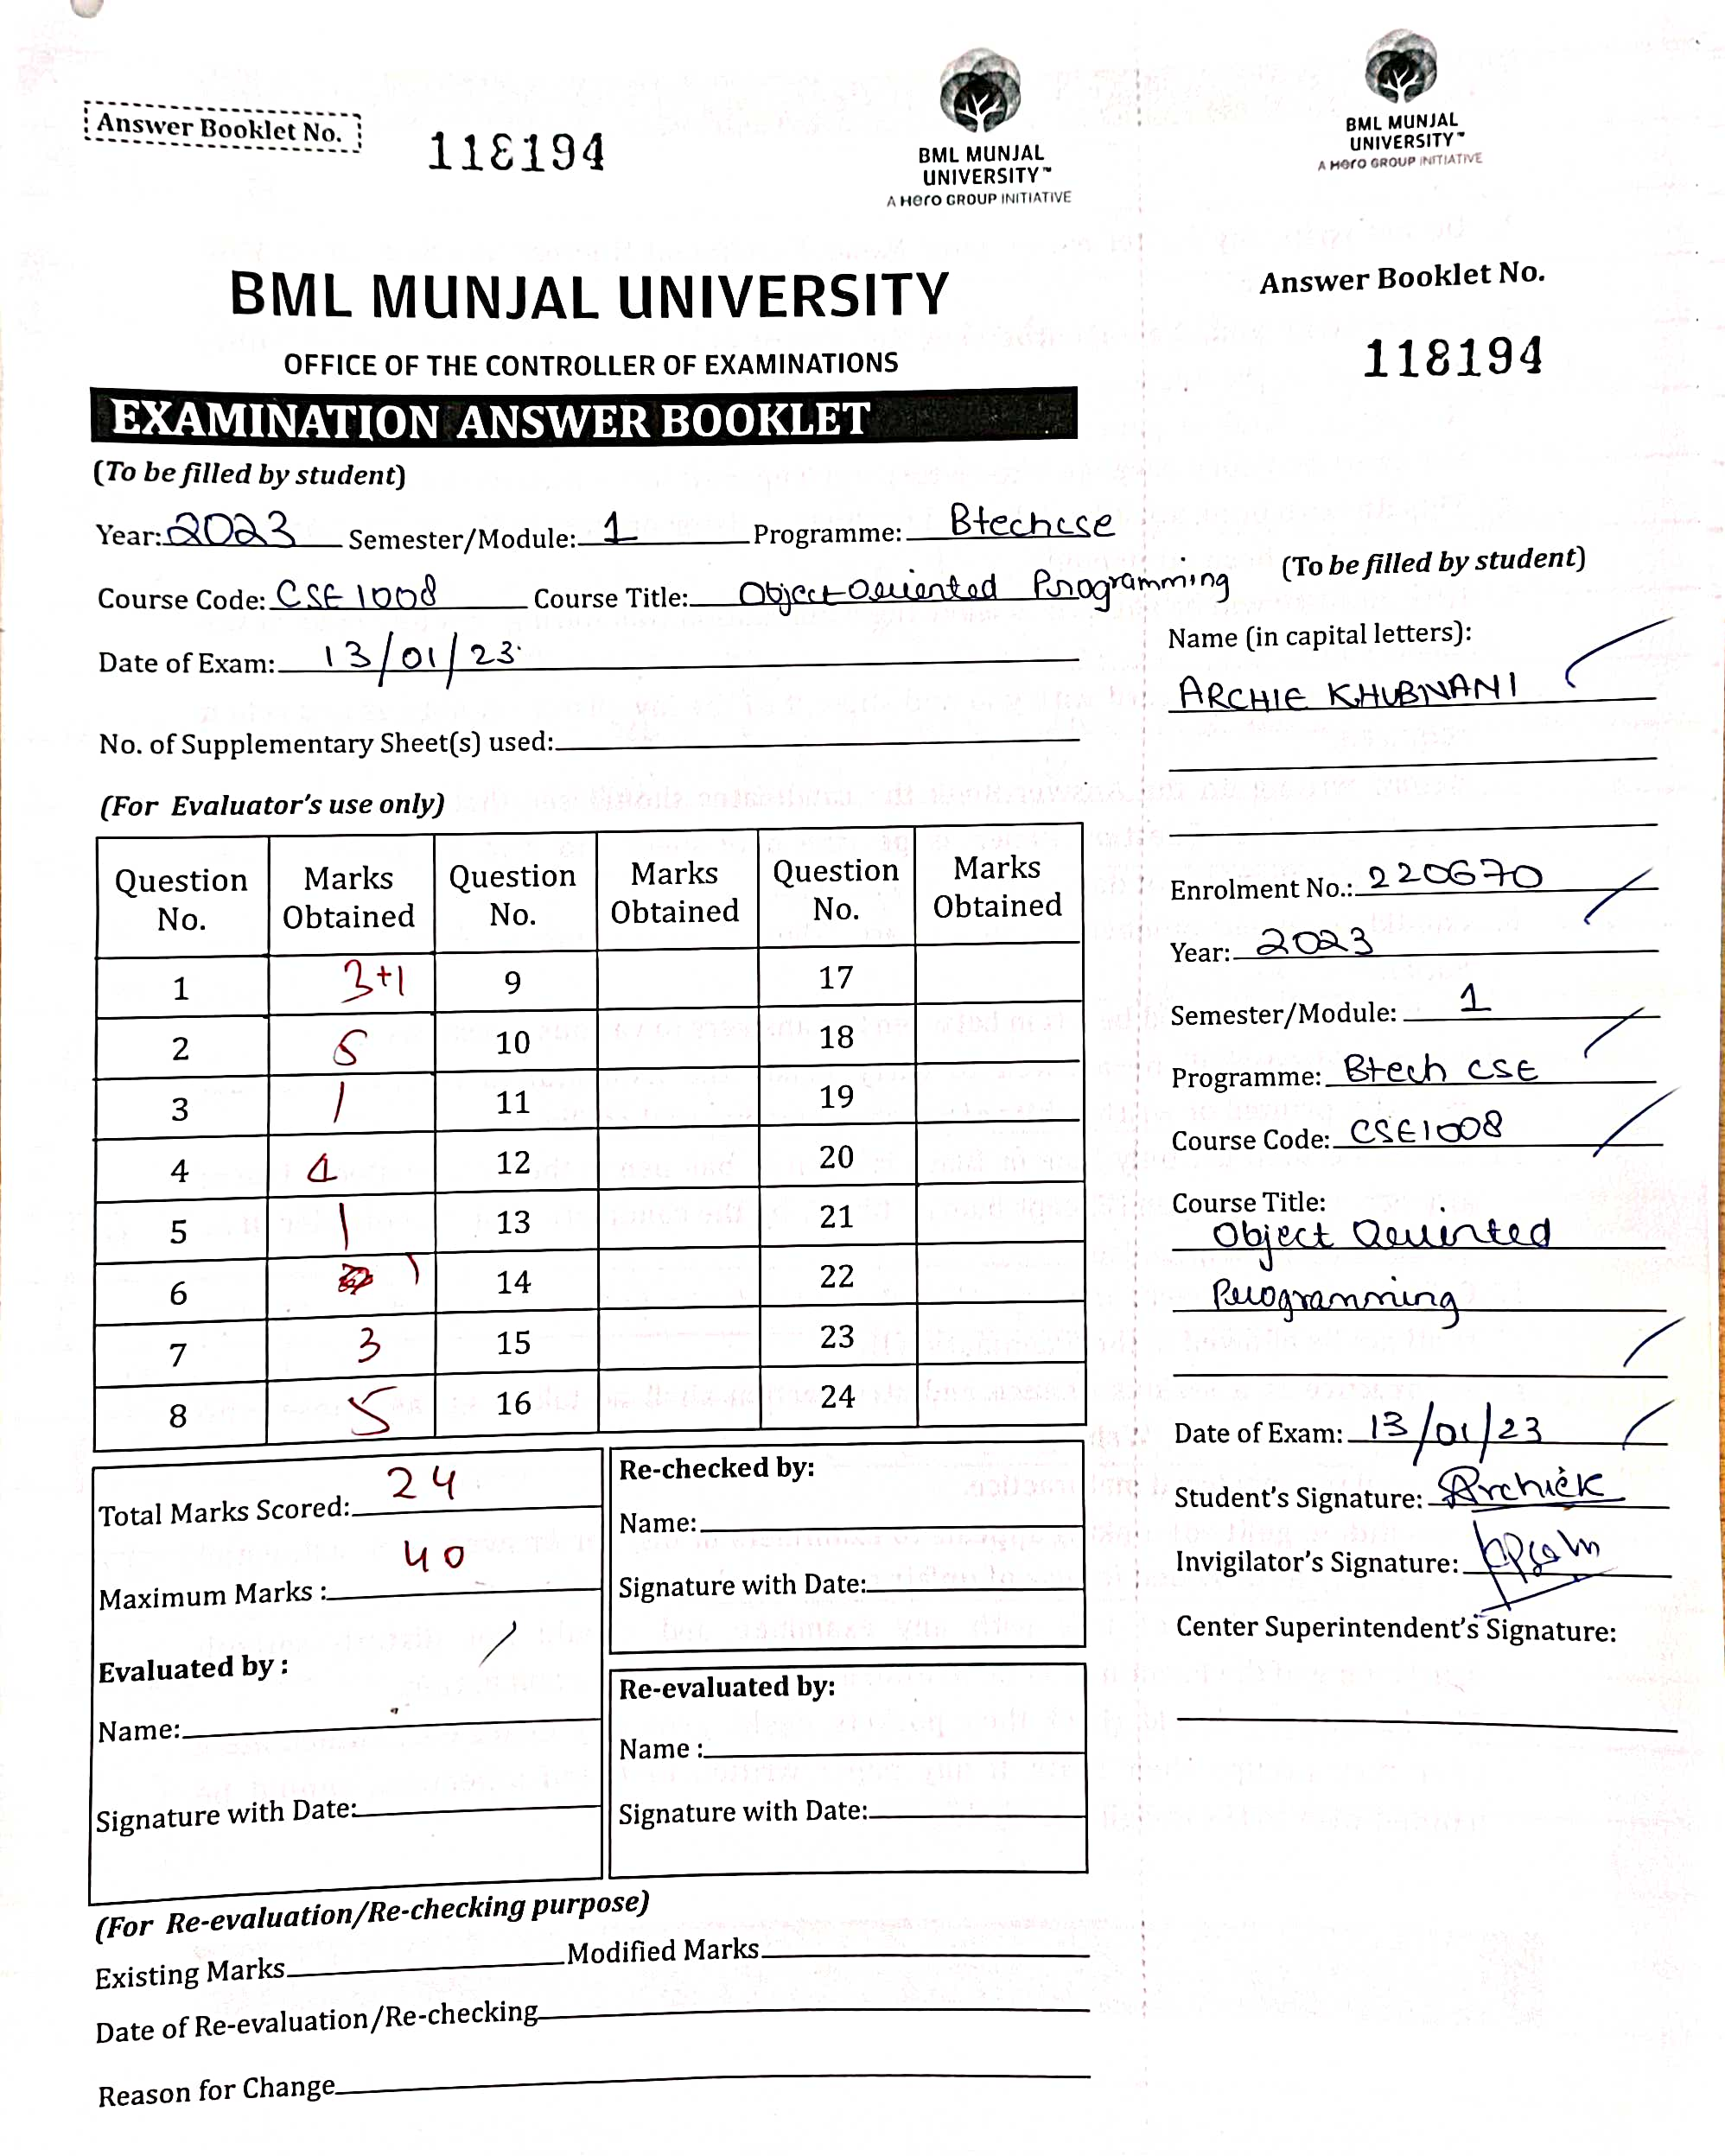 Answer Booklet No.
118194
BML MUNJAL
UNIVERSITY™
A Hero GROUP INITIATIVE
BML MUNJAL UNIVERSITY
OFFICE OF THE CONTROLLER OF EXAMINATIONS
EXAMINATION ANSWER BOOKLET
(To be filled by student)
Year: 2023 Semester/Module: 1 Programme: Btechcse
Course Code: CSE1008 Course Title: Object Oriented Programming
Date of Exam: 13/01/23
No. of Supplementary Sheet(s) used:
(For Evaluator's use only)
Question No. Marks Obtained Question No. Marks Obtained Question No. Marks Obtained
1 3+1 9 17
2 5 10 18
3 1 11 19
4 4 12 20
5 1 13 21
6 1 14 22
7 3 15 23
8 5 16 24
Total Marks Scored: 24
Maximum Marks : 40
Evaluated by :
Name:
Signature with Date:
Re-checked by:
Name:
Signature with Date:
Re-evaluated by:
Name :
Signature with Date:
(For Re-evaluation/Re-checking purpose)
Existing Marks Modified Marks
Date of Re-evaluation/Re-checking
Reason for Change
BML MUNJAL
UNIVERSITY™
A Hero GROUP INITIATIVE
Answer Booklet No.
118194
(To be filled by student)
Name (in capital letters):
ARCHIE KHUBNANI
Enrolment No.: 220670
Year: 2023
Semester/Module: 1
Programme: Btech CSE
Course Code: CSE1008
Course Title:
Object Oriented
Programming
Date of Exam: 13/01/23
Student's Signature: Archiek
Invigilator's Signature:
Center Superintendent's Signature: